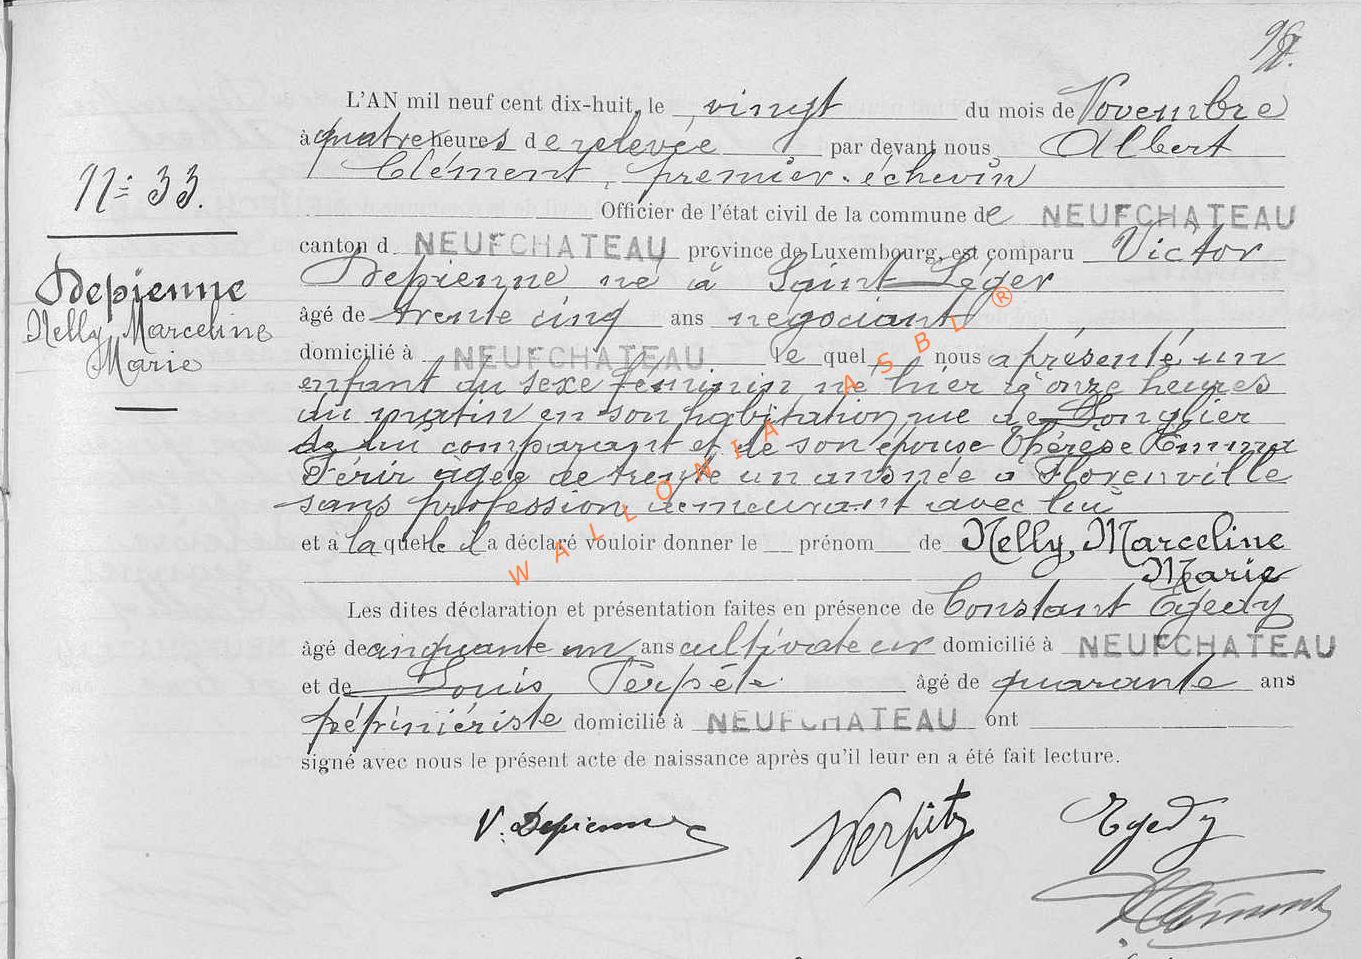 L'AN mil neuf cent dix-huit, le vingt du mois de Novembre
à quatre heures de relevée par devant nous Albert
Clément, premier échevin
Officier de l'état civil de la commune de NEUFCHATEAU
canton d NEUFCHATEAU province de Luxembourg, est comparu Victor
Depienne né à Saint-Léger
âgé de trente cinq ans négociant
domicilié à NEUFCHATEAU lequel nous a présenté un
enfant du sexe féminin né hier à onze heures
du matin en son habitation rue de Longlier
de lui comparant et de son épouse Thérèse Emma
Périr âgée de trente un ans née à Florenville
sans profession demeurant avec lui
et à laquelle il a déclaré vouloir donner le prénom de Nelly, Marceline
Marie
Les dites déclaration et présentation faites en présence de Constant Egedy
âgé de cinquante un ans cultivateur domicilié à NEUFCHATEAU
et de Louis Perpète âgé de quarante ans
pépiniériste domicilié à NEUFCHATEAU ont
signé avec nous le présent acte de naissance après qu'il leur en a été fait lecture.
N° 33.
Depienne
Nelly, Marceline
Marie
V. Depienne Egedy
Clément
WALLONIA ASBL ®